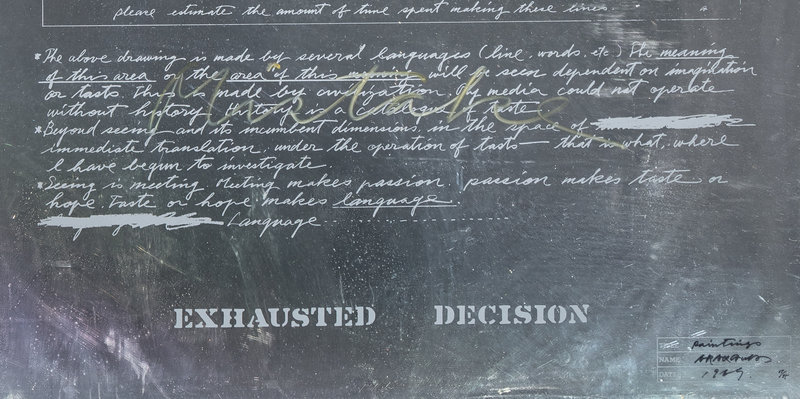 please estimate the amount of time spent making these lines
*The above drawing is made by several languages (line, words, etc.) The meaning
of this area or the area of this meaning will be seen dependent on imagination
or taste. This made by civilization. My media could not operate
without history. History is of taste
*Beyond seeing and its incumbent dimensions, in the space of
immediate translation, under the operation of taste — that is what, where
I have begun to investigate.
*Seeing is meeting. Meeting makes passion, passion makes taste or
hope. Taste or hope makes language.
Language
Mistake
EXHAUSTED DECISION
paintings
NAME ARAKAWA
DATE 1969